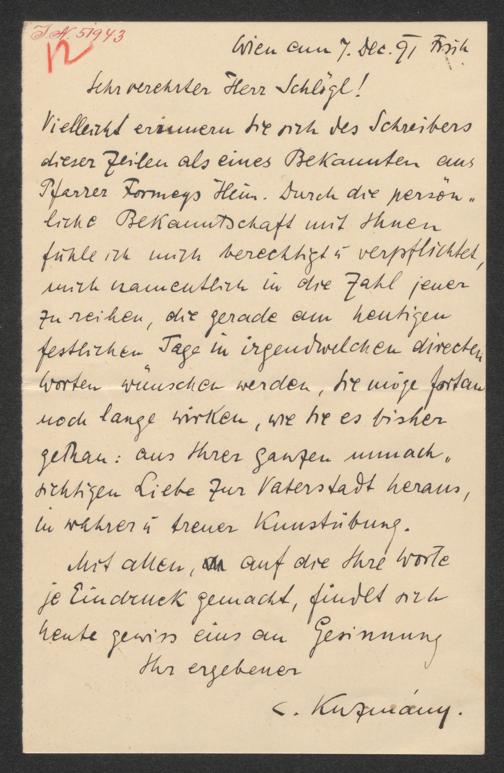 I. N. 51943
12
Wien am 7. Dec. 91 Früh
Sehr verehrter Herr Schlögl!
Vielleicht erinnern Sie sich des Schreibers
dieser Zeilen als eines Bekannten aus
Pfarrer Formeys Heim. Durch die persön„
liche Bekanntschaft mit Ihnen
fühle ich mich berechtigt u verpflichtet,
mich namentlich in die Zahl jener
zu reihen, die gerade am heutigen
festlichen Tage in irgendwelchen directen
Worten wünschen werden, Sie möge fortan
noch lange wirken, wie Sie es bisher
gethan: aus Ihrer ganzen unnach„
sichtigen Liebe zur Vaterstadt heraus,
in wahrer u treuer Kunstübung.
Mit allen, auf die Ihre Worte
je Eindruck gemacht, findet sich
heute gewiss eins an Gesinnung
Ihr ergebener
C. Kuzmány.